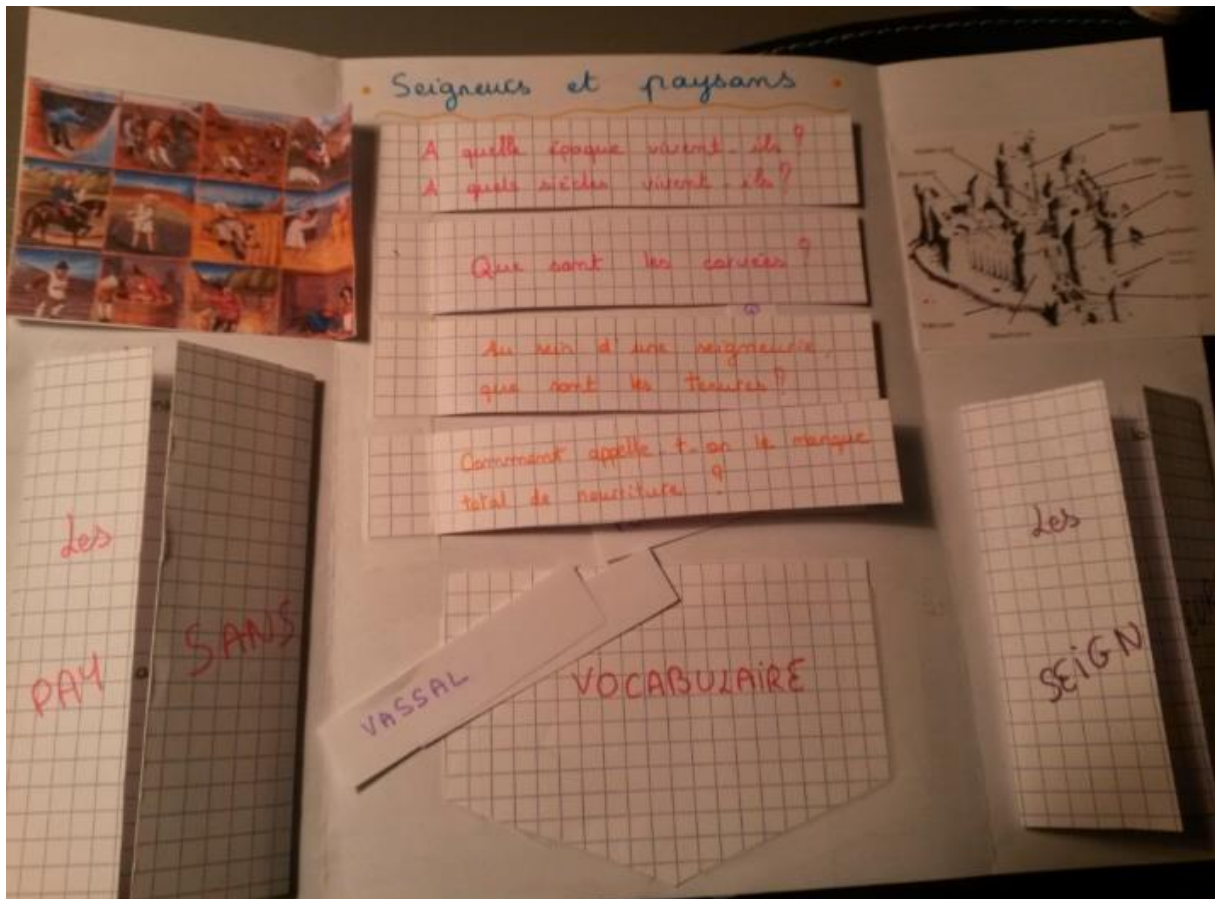 Seigneurs et paysans
A quelle époque vivent-ils?
A quels siècles vivent-ils?
Que sont les corvées?
Au sein d'une seigneurie,
que sont les tenures?
Comment appelle-t-on le manque
total de nourriture?
Les
PAY
SANS
VASSAL
VOCABULAIRE
Les
SEIGN